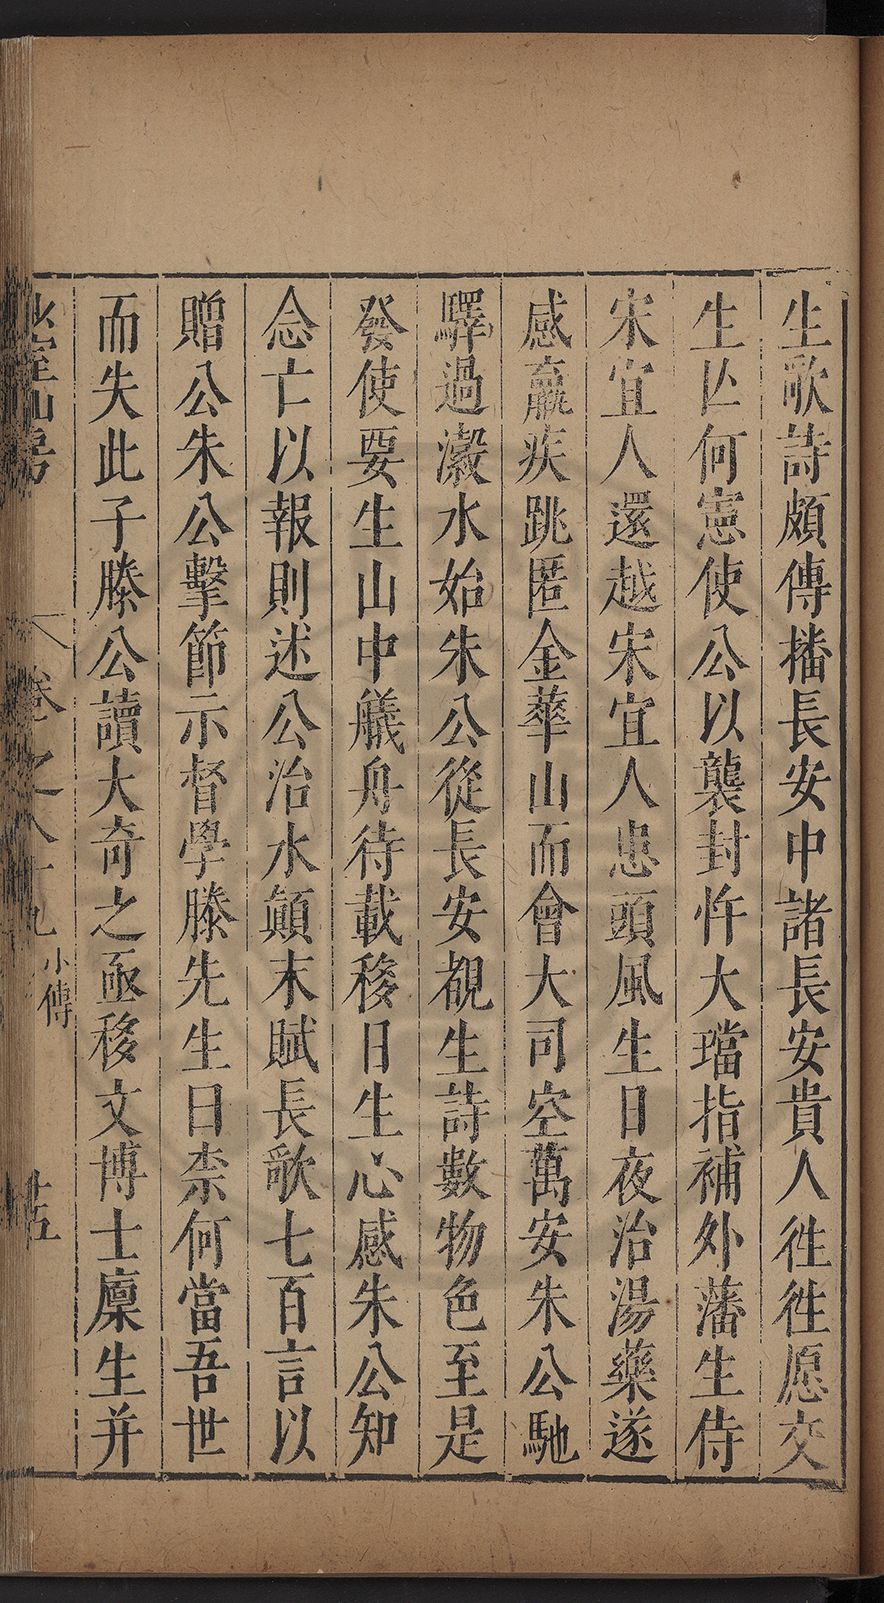 生歌詩頗傳播長安中諸長安貴人徃徃愿交
生亾何憲使公以襲封忤大璫指補外藩生侍
宋宜人還越宋宜人患頭風生日夜治湯藥遂
感羸疾跳匿金華山而會大司空萬安朱公馳
驛過瀔水始朱公從長安覩生詩數物色至是
發使要生山中艤舟待載移日生心感朱公知
念亡以報則述公治水顛末賦長歌七百言以
贈公朱公擊節示督學滕先生曰柰何當吾世
而失此子滕公讀大奇之亟移文博士廩生并
室山房 卷之八十九 小傳 十五